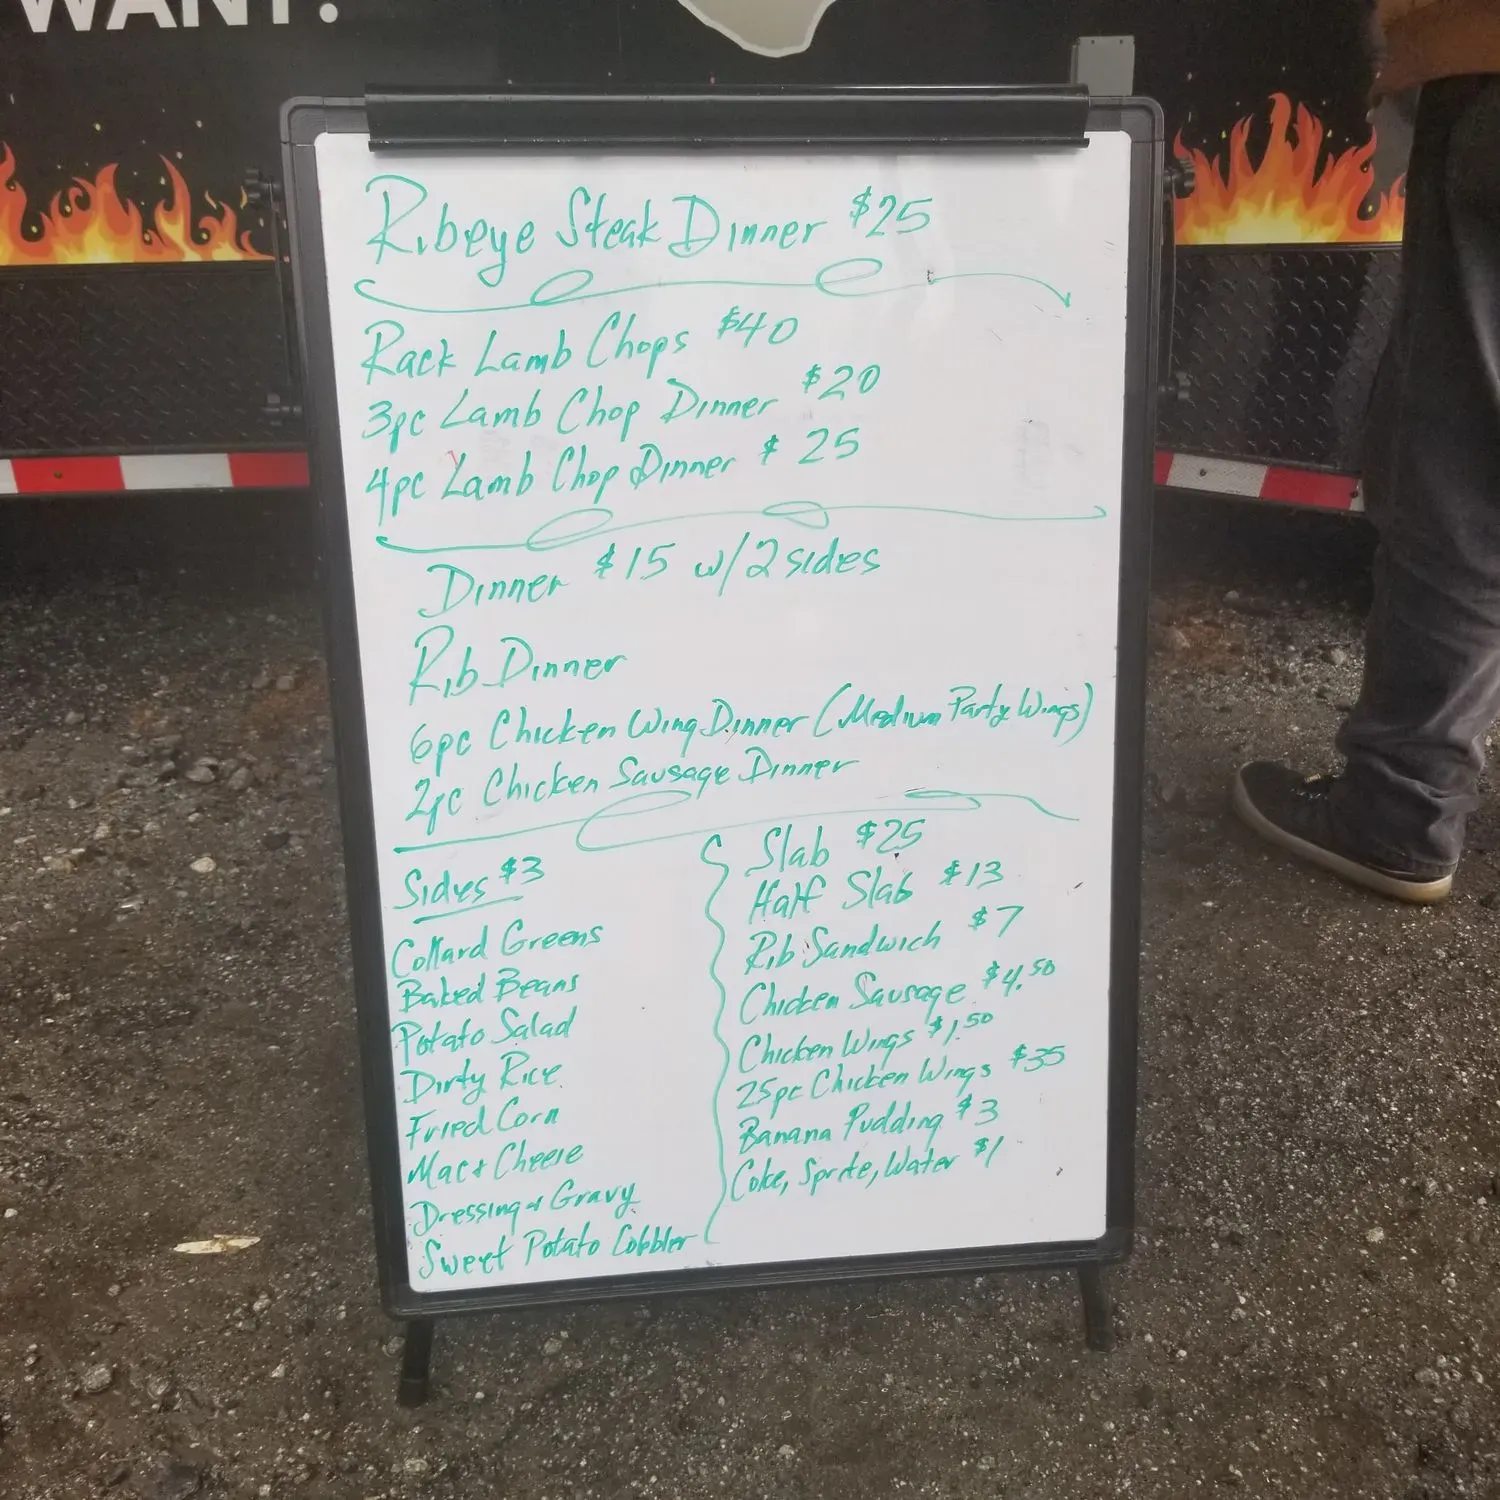 WANT?
Ribeye Steak Dinner $25
Rack Lamb Chops $40
3pc Lamb Chop Dinner $20
4pc Lamb Chop Dinner $25
Dinner $15 w/2 sides
Rib Dinner
6pc Chicken Wing Dinner (Medium Party Wings)
2pc Chicken Sausage Dinner
Sides $3
Collard Greens
Baked Beans
Potato Salad
Dirty Rice
Fried Corn
Mac & Cheese
Dressing & Gravy
Sweet Potato Cobbler
Slab $25
Half Slab $13
Rib Sandwich $7
Chicken Sausage $4.50
Chicken Wings $1.50
25pc Chicken Wings $35
Banana Pudding $3
Coke, Sprite, Water $1